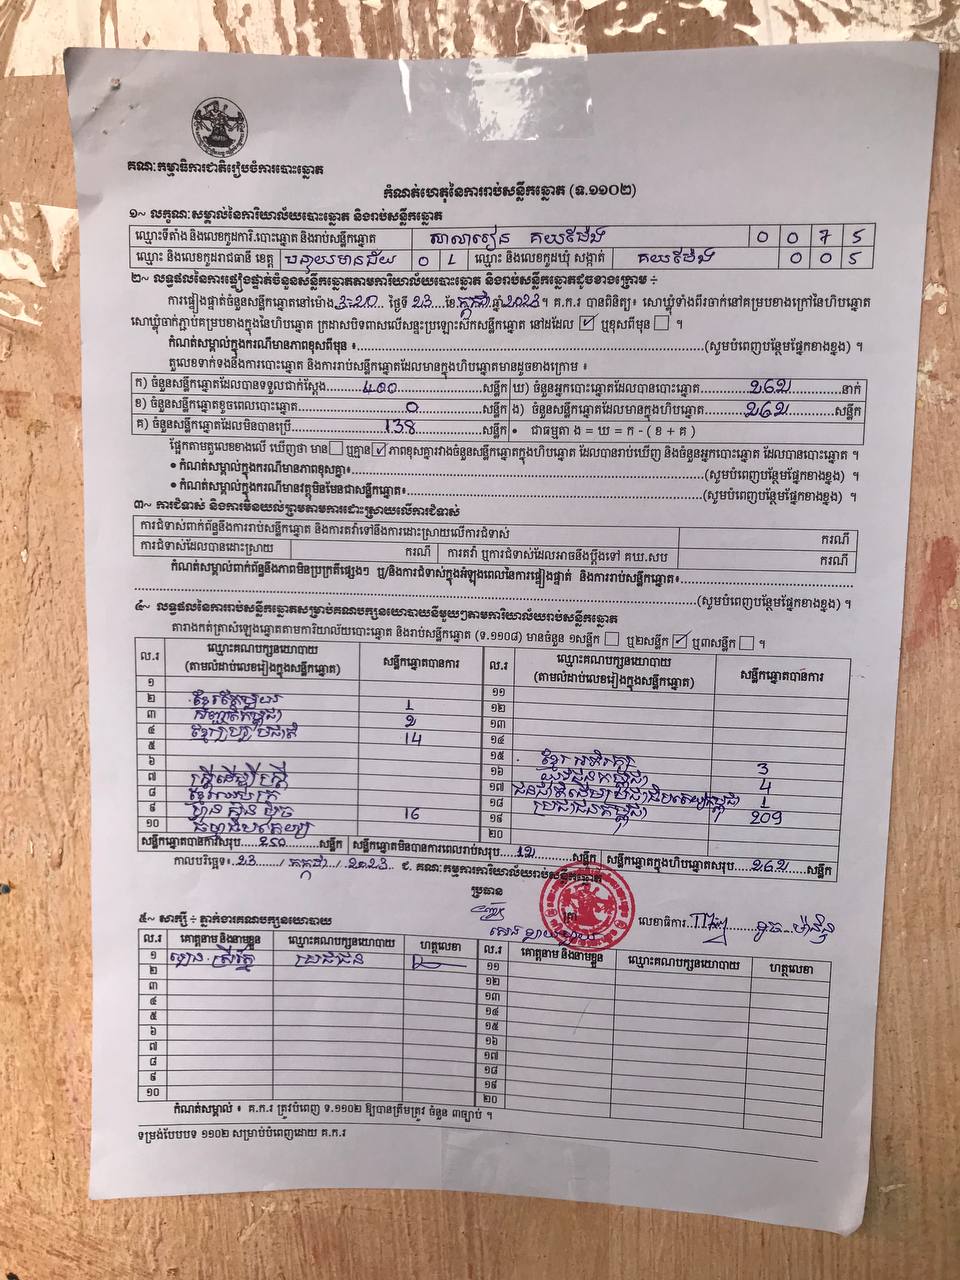 គណៈកម្មាធិការជាតិរៀបចំការបោះឆ្នោត
កំណត់ហេតុនៃការរាប់សន្លឹកឆ្នោត (ទ.១១០២)
១~ លក្ខណៈសម្គាល់នៃការិយាល័យបោះឆ្នោត និងរាប់សន្លឹកឆ្នោត
ឈ្មោះទីតាំង និងលេខកូដការិ.បោះឆ្នោត និងរាប់សន្លឹកឆ្នោត សាលារៀន គយម៉ែង 0 0 7 5
ឈ្មោះ និងលេខកូដរាជធានី ខេត្ត បន្ទាយមានជ័យ 0 1 ឈ្មោះ និងលេខកូដឃុំ សង្កាត់ គយម៉ែង 0 0 5
២~ លទ្ធផលនៃការផ្ទៀងផ្ទាត់ចំនួនសន្លឹកឆ្នោតតាមការិយាល័យបោះឆ្នោត និងរាប់សន្លឹកឆ្នោតដូចខាងក្រោម ÷
ការផ្ទៀងផ្ទាត់ចំនួនសន្លឹកឆ្នោតនៅម៉ោង 3-20 ថ្ងៃទី 23 ខែ កក្កដា ឆ្នាំ 2023 ។ គ.ក.រ បានពិនិត្យ៖ សោឃ្លុំទាំងពីរចាក់នៅគម្របខាងក្រៅនៃហិបឆ្នោត
សោឃ្លុំចាក់ភ្ជាប់គម្របខាងក្នុងនៃហិបឆ្នោត ក្រដាសបិទពាសលើសន្ទះប្រឡោះស៊កសន្លឹកឆ្នោត នៅដដែល ☑ ឬខុសពីមុន ☐ ។
កំណត់សម្គាល់ក្នុងករណីមានភាពខុសពីមុន ៖ (សូមបំពេញបន្ថែមផ្នែកខាងខ្នង) ។
តួលេខទាក់ទងនឹងការបោះឆ្នោត និងការរាប់សន្លឹកឆ្នោតដែលមានក្នុងហិបឆ្នោតមានដូចខាងក្រោម ៖
ក) ចំនួនសន្លឹកឆ្នោតដែលបានទទួលជាក់ស្តែង 400 សន្លឹក ឃ) ចំនួនអ្នកបោះឆ្នោតដែលបានបោះឆ្នោត 262 នាក់
ខ) ចំនួនសន្លឹកឆ្នោតខូចពេលបោះឆ្នោត 0 សន្លឹក ង) ចំនួនសន្លឹកឆ្នោតដែលមានក្នុងហិបឆ្នោត 262 សន្លឹក
គ) ចំនួនសន្លឹកឆ្នោតដែលមិនបានប្រើ 138 សន្លឹក • ជាធម្មតា ង = ឃ = ក - ( ខ + គ )
ផ្អែកតាមតួលេខខាងលើ ឃើញថា មាន ☐ ឬគ្មាន ☑ ភាពខុសគ្នារវាងចំនួនសន្លឹកឆ្នោតក្នុងហិបឆ្នោត ដែលបានរាប់ឃើញ និងចំនួនអ្នកបោះឆ្នោត ដែលបានបោះឆ្នោត ។
• កំណត់សម្គាល់ក្នុងករណីមានភាពខុសគ្នា៖ (សូមបំពេញបន្ថែមផ្នែកខាងខ្នង) ។
• កំណត់សម្គាល់ក្នុងករណីមានវត្ថុមិនមែនជាសន្លឹកឆ្នោត៖ (សូមបំពេញបន្ថែមផ្នែកខាងខ្នង) ។
៣~ ការជំទាស់ និងការមិនយល់ព្រមតាមការដោះស្រាយលើការជំទាស់
ការជំទាស់ពាក់ព័ន្ធនឹងការរាប់សន្លឹកឆ្នោត និងការតវ៉ាទៅនឹងការដោះស្រាយលើការជំទាស់ ករណី
ការជំទាស់ដែលបានដោះស្រាយ ករណី ការតវ៉ា ឬការជំទាស់ដែលអាចនឹងប្តឹងទៅ គឃ.សប ករណី
កំណត់សម្គាល់ពាក់ព័ន្ធនឹងភាពមិនប្រក្រតីផ្សេងៗ ឬ/និងការជំទាស់ក្នុងអំឡុងពេលនៃការផ្ទៀងផ្ទាត់ និងការរាប់សន្លឹកឆ្នោត៖
(សូមបំពេញបន្ថែមផ្នែកខាងខ្នង) ។
៤~ លទ្ធផលនៃការរាប់សន្លឹកឆ្នោតសម្រាប់គណបក្សនយោបាយនីមួយៗតាមការិយាល័យរាប់សន្លឹកឆ្នោត
តារាងកត់ត្រាសំឡេងឆ្នោតតាមការិយាល័យបោះឆ្នោត និងរាប់សន្លឹកឆ្នោត (ទ.១១០៨) មានចំនួន ១សន្លឹក ☐ ឬ២សន្លឹក ☑ ឬ៣សន្លឹក ☐ ។
ល.រ ឈ្មោះគណបក្សនយោបាយ (តាមលំដាប់លេខរៀងក្នុងសន្លឹកឆ្នោត) សន្លឹកឆ្នោតបានការ ល.រ ឈ្មោះគណបក្សនយោបាយ (តាមលំដាប់លេខរៀងក្នុងសន្លឹកឆ្នោត) សន្លឹកឆ្នោតបានការ
១ ១១
២ ខ្មែរតែមួយ 1 ១២
៣ សញ្ជាតិកម្ពុជា 2 ១៣
៤ 14 ១៤
៥ ១៥ ខ្មែរ អភិរក្ស 3
៦ ១៦ យុវជនកម្ពុជា 4
៧ ស្ត្រីដើម្បីស្ត្រី ១៧ ជនជាតិដើមប្រជាធិបតេយ្យកម្ពុជា 1
៨ ខ្មែរឈប់ក្រ ១៨ ប្រជាជនកម្ពុជា 209
៩ ហ៊្វុនស៊ិនប៉ិច 16 ១៩
១០ ធម្មាធិបតេយ្យ ២០
សន្លឹកឆ្នោតបានការសរុប 250 សន្លឹក សន្លឹកឆ្នោតមិនបានការពេលរាប់សរុប 12 សន្លឹក សន្លឹកឆ្នោតក្នុងហិបឆ្នោតសរុប 262 សន្លឹក
កាលបរិច្ឆេទ៖ 23 / កក្កដា / 2023 ជ. គណៈកម្មការការិយាល័យរាប់សន្លឹកឆ្នោត
ប្រធាន
លេខាធិការ
៥~ សាក្សី ÷ ភ្នាក់ងារគណបក្សនយោបាយ
ល.រ គោត្តនាម និងនាមខ្លួន ឈ្មោះគណបក្សនយោបាយ ហត្ថលេខា ល.រ គោត្តនាម និងនាមខ្លួន ឈ្មោះគណបក្សនយោបាយ ហត្ថលេខា
១ ប្រជាជន ១១
២ ១២
៣ ១៣
៤ ១៤
៥ ១៥
៦ ១៦
៧ ១៧
៨ ១៨
៩ ១៩
១០ ២០
កំណត់សម្គាល់ ៖ គ.ក.រ ត្រូវបំពេញ ទ.១១០២ ឱ្យបានត្រឹមត្រូវ ចំនួន ៣ច្បាប់ ។
ទម្រង់បែបបទ ១១០២ សម្រាប់បំពេញដោយ គ.ក.រ